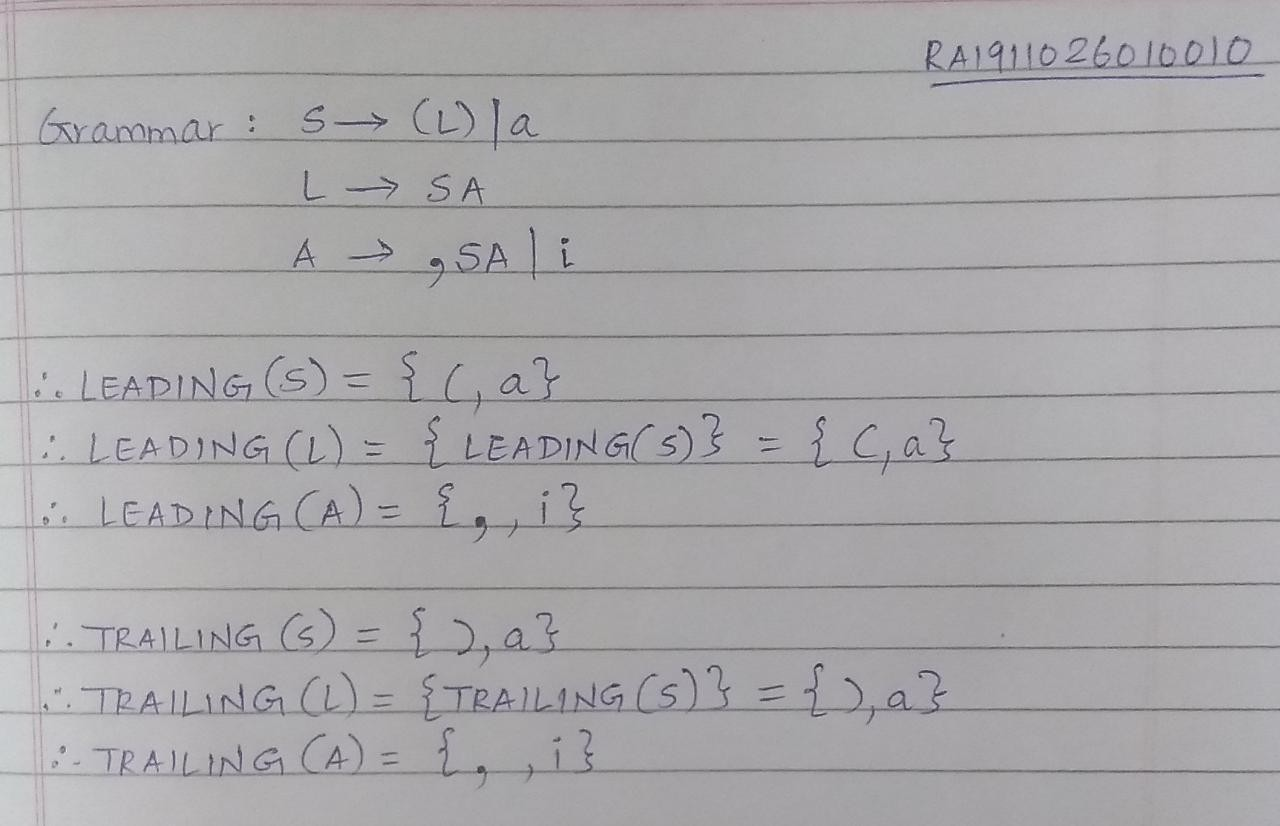 RA1911026010010
Grammar : S → (L) | a
L → SA
A → ,SA | i
∴ LEADING (S) = { (, a}
∴ LEADING (L) = { LEADING(S)} = { (, a}
∴ LEADING (A) = { , , i}
∴ TRAILING (S) = { ), a}
∴ TRAILING (L) = {TRAILING (S)} = { ), a}
∴ TRAILING (A) = { , , i}